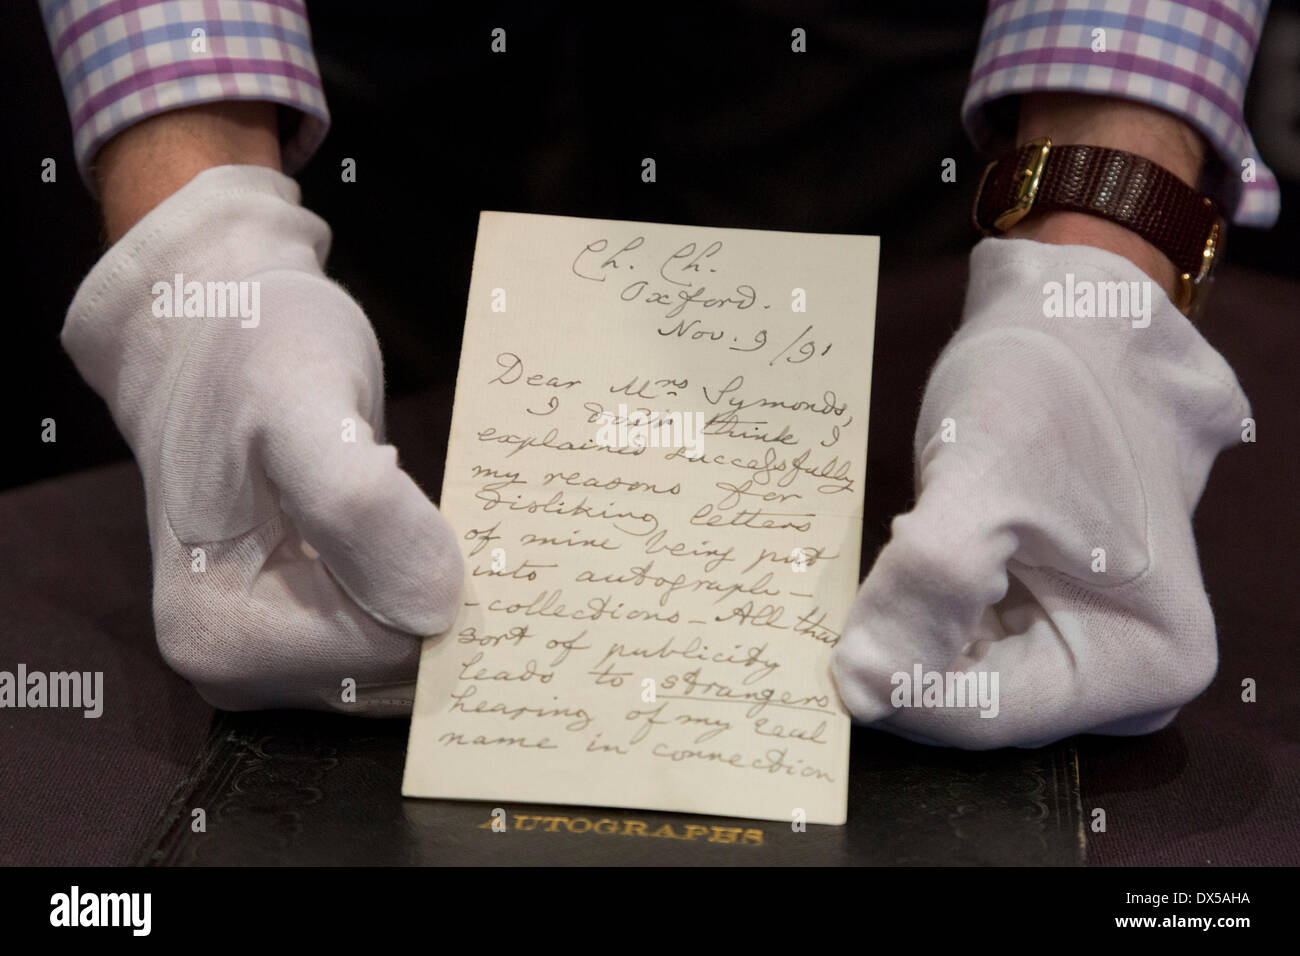 Ch. Ch.
Oxford.
Nov. 9/91
Dear Mrs Symonds,
I don't think I
explained successfully
my reasons for
disliking letters
of mine being put
into autograph-
-collections - All that
sort of publicity
leads to strangers
hearing of my real
name in connection
AUTOGRAPHS
alamy
Image ID: DX5AHA
www.alamy.com